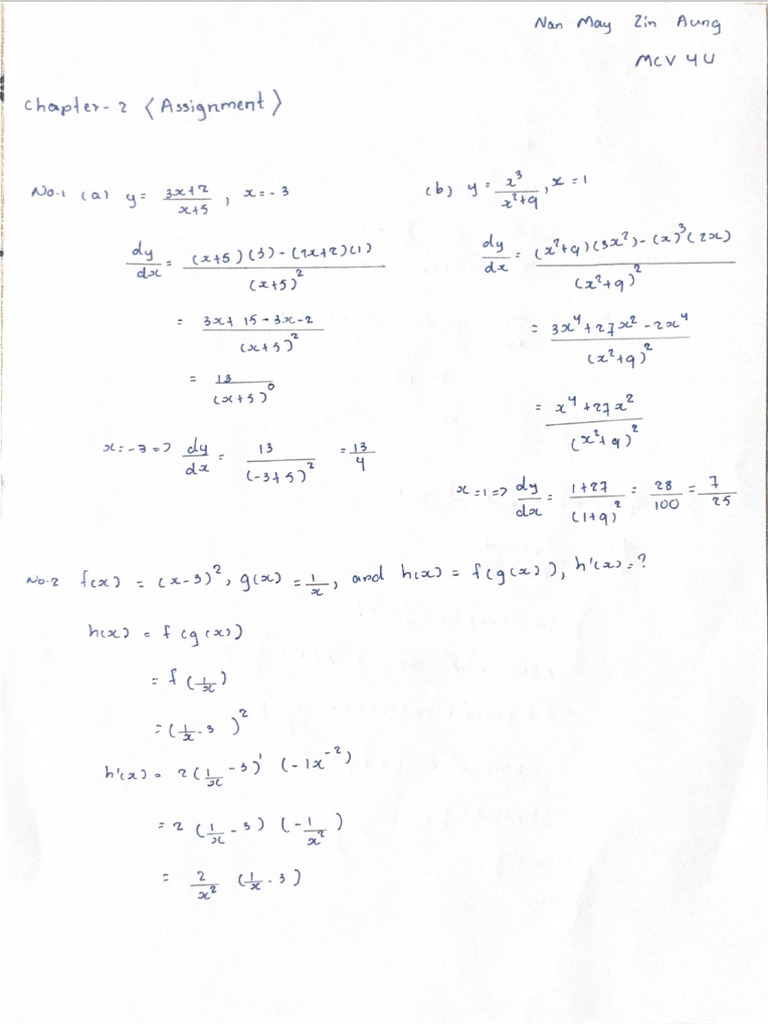 Nan May Zin Aung
MCV 4U
Chapter-2 (Assignment)
No.1 (a) y = (3x+2)/(x+5), x = -3
dy/dx = ((x+5)(3) - (3x+2)(1))/(x+5)^2
= (3x + 15 - 3x - 2)/(x+5)^2
= 13/(x+5)^0
x = -3 => dy/dx = 13/(-3+5)^2 = 13/4
(b) y = x^3/(x^2+9), x = 1
dy/dx = ((x^2+9)(3x^2) - (x)^3(2x))/(x^2+9)^2
= (3x^4 + 27x^2 - 2x^4)/(x^2+9)^2
= (x^4 + 27x^2)/(x^2+9)^2
x = 1 => dy/dx = (1+27)/(1+9)^2 = 28/100 = 7/25
No.2 f(x) = (x-3)^2, g(x) = 1/x, and h(x) = f(g(x)), h'(x) = ?
h(x) = f(g(x))
= f(1/x)
= (1/x - 3)^2
h'(x) = 2(1/x - 3)^1 (-1x^-2)
= 2 (1/x - 3) (-1/x^2)
= 2/x^2 (1/x - 3)